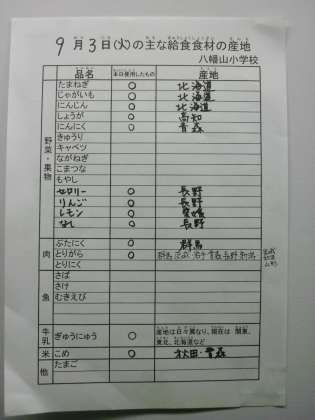 9月3日(火)の主な給食食材の産地
八幡山小学校
品名 本日使用したもの 産地
野菜・果物
たまねぎ ○ 北海道
じゃがいも ○ 北海道
にんじん ○ 北海道
しょうが ○ 高知
にんにく ○ 青森
きゅうり
キャベツ
ながねぎ
こまつな
もやし
セロリー ○ 長野
りんご ○ 長野
レモン ○ 愛媛
なし ○ 長野
肉
ぶたにく ○ 群馬
とりがら ○ 群馬 茨城 岩手 青森 長野
とりにく
魚
さば
さけ
むきえび
牛乳 ぎゅうにゅう ○ 産地は日々異なり、現在は 関東、
東北、北海道など
米 こめ ○ 秋田・青森
他 たまご